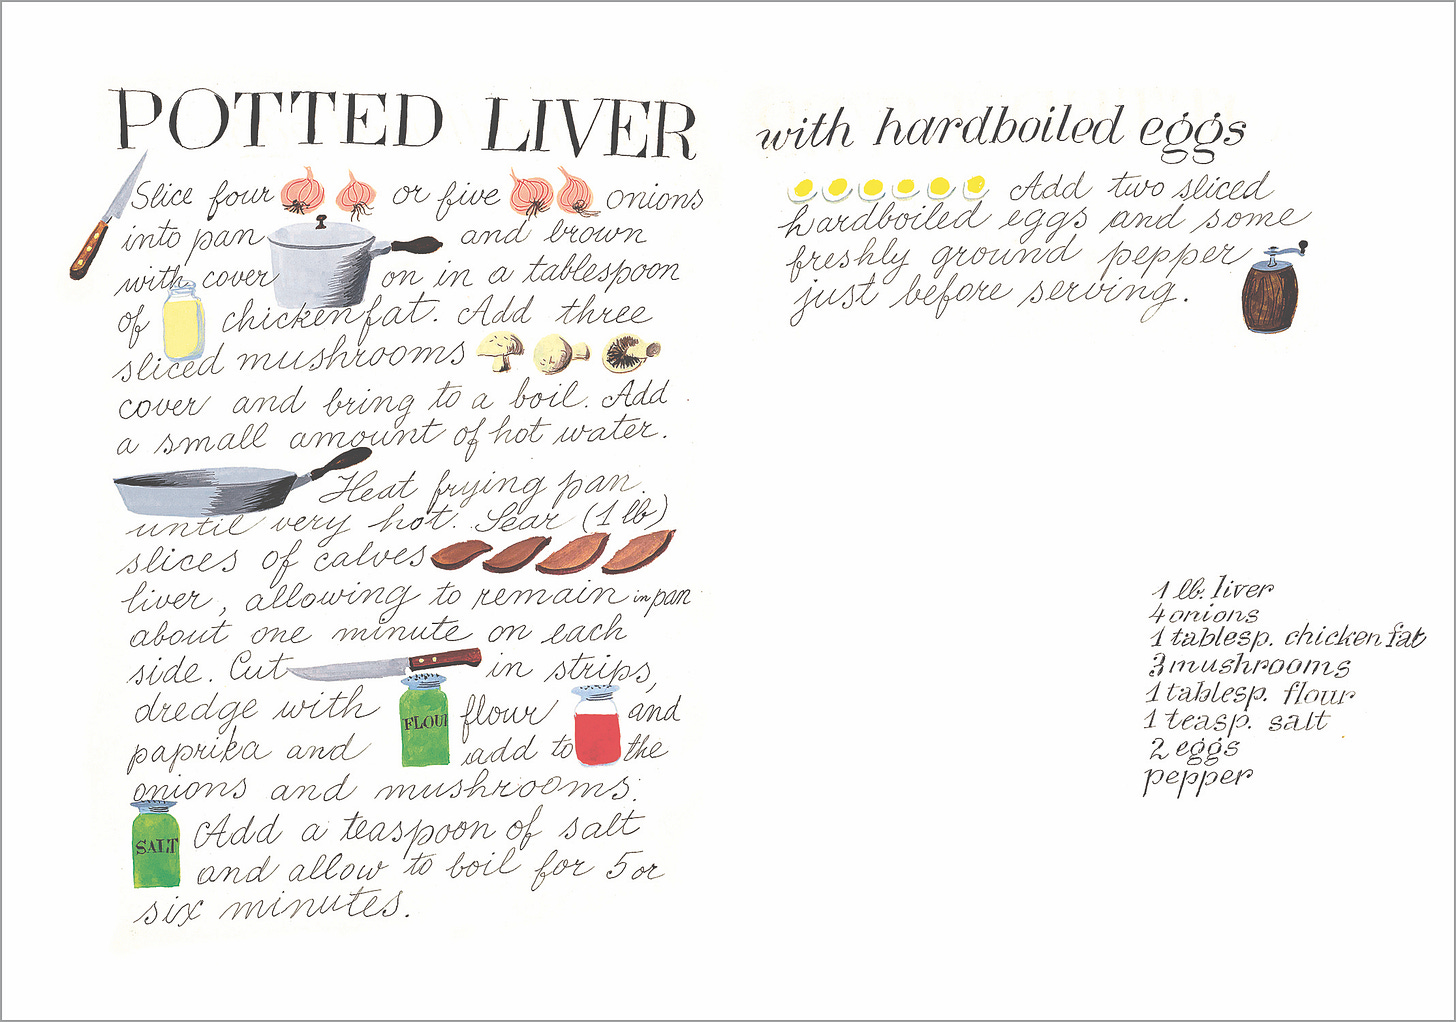 POTTED LIVER
Slice four or five onions
into pan and brown
with cover on in a tablespoon
of chicken fat. Add three
sliced mushrooms
cover and bring to a boil. Add
a small amount of hot water.
Heat frying pan
until very hot. Sear (1 lb)
slices of calves
liver, allowing to remain in pan
about one minute on each
side. Cut in strips,
dredge with FLOUR flour and
paprika and add to the
onions and mushrooms.
SALT Add a teaspoon of salt
and allow to boil for 5 or
six minutes.
with hardboiled eggs
Add two sliced
hardboiled eggs and some
freshly ground pepper
just before serving.
1 lb. liver
4 onions
1 tablesp. chicken fat
3 mushrooms
1 tablesp. flour
1 teasp. salt
2 eggs
pepper